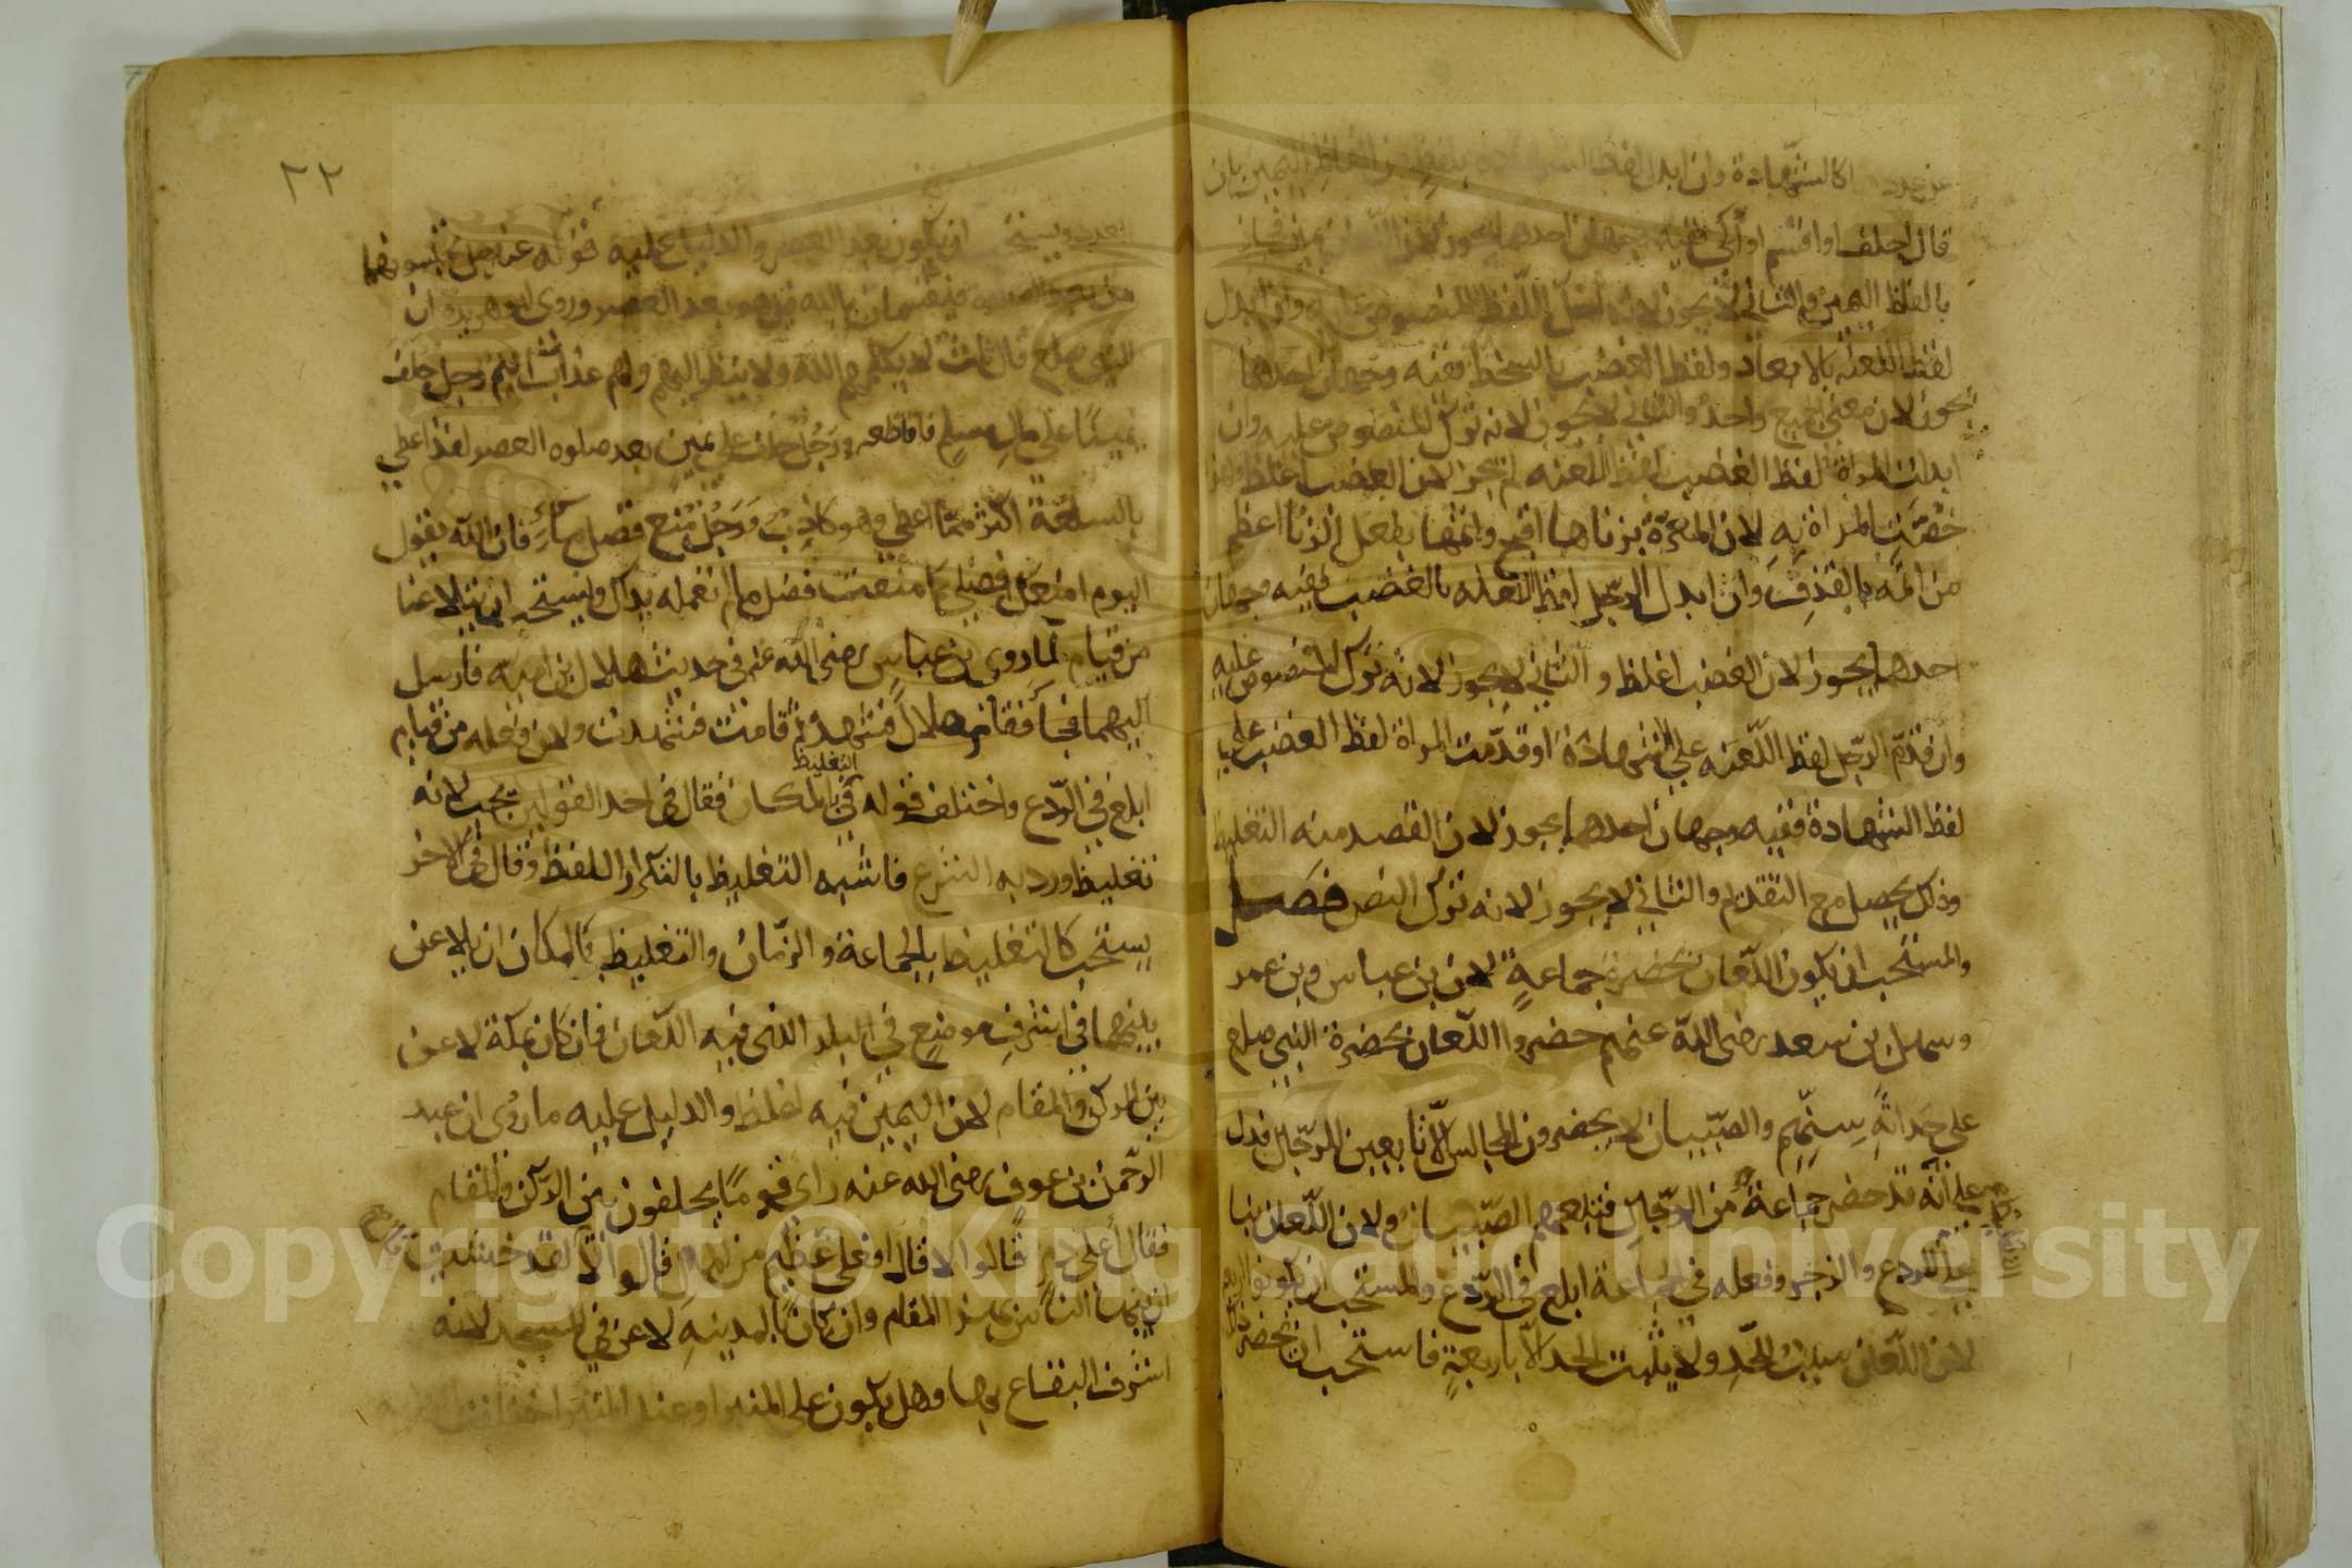 كالشهادة وان ابدل لفظ الشهادة بلفظ من الفاظ اليمين بان
قال احلف او اقسم او ففيه وجهان احدهما يجوز لان اللعان يمين فجاز
بالفاظ اليمين والثاني لا يجوز لانه اخل باللفظ المنصوص عليه وان ابدل
لفظ اللعنه بالابعاد ولفظ الغضب بالسخط ففيه وجهان احدهما
يجوز لان معنى الجميع واحد والثاني لا يجوز لانه ترك المنصوص عليه وان
ابدلت المراة لفظ الغضب بلفظ اللعنه لم يجز لان الغضب اغلظ ولهذا
خصت المراة به لان المعرة بزناها اقبح واثمها بفعل الزنا اعظم
من اثمه بالقذف وان ابدل الرجل لفظ اللعنه بالغضب ففيه وجهان
احدهما يجوز لان الغضب اغلظ والثاني لا يجوز لانه ترك المنصوص عليه
وان قدم الرجل لفظ اللعنه علي الشهادة او قدمت المراة لفظ الغضب علي
لفظ الشهادة ففيه وجهان احدهما يجوز لان القصد منه التغليظ
وذلك يحصل مع التقديم والثاني لا يجوز لانه ترك النص فصل
والمستحب ان يكون اللعان بحضرة جماعة لان بن عباس وبن عمر
وسهل بن سعد رضى الله عنهم حضروا اللعان بحضرة النبي صلع
علي حداثة سنهم والصبيان لا يحضرون المجالس الا تابعين للرجال فدل
علي انه قد حضر جماعة من الرجال فتبعهم الصبيان ولان اللعان بنا
علي الردع والزجر وفعله في الجماعة ابلغ في الردع والمستحب ان يكونوا اربعة
لان اللعان سبب للحد ولا يثبت الحد الا باربعة فاستحب ان يحضر
٢٢
ويستحب ان يكون بعد العصر والدليل عليه قوله عز وجل تحبسونهما
من بعد الصلاه فيقسمان بالله هو بعد العصر وروى ابو هريرة ان
النبي صلع قال ثلث لا يكلمهم الله ولا ينظر اليهم ولهم عذاب اليم رجل حلف
يمينا على مال مسلم فاقتطعه ورجل حلف على يمين بعد صلوه العصر لقد اعطي
بالسلعة اكثر مما اعطي وهو كاذب ورجل منع فضل ماء فان الله يقول
اليوم امنعك فضلي كما منعت فضل ما لم تعمله يداك ويستحب ان يتلاعنا
من قيام لما روى بن عباس رضى الله عنه في حديث هلال بن اميه فارسل
اليهما فجاا فقام هلال فشهد ثم قامت فشهدت ولان فعله من قيام
ابلغ في الردع واختلف قوله في التغليظ بالمكان فقال في احد القولين يجب لانه
تغليظ ورد به الشرع فاشبه التغليظ بالتكرار اللفظ وقال في الاخر
يستحب كالتغليظ بالجماعة والزمان والتغليظ بالمكان ان يلاعن
بينهما في اشرف موضع في البلد الذى فيه اللعان فان كان بمكة لاعن
بين الركن والمقام لان اليمين فيه اغلظ والدليل عليه ما روى ان عبد
الرحمن بن عوف رضى الله عنه راى قوما يحلفون بين الركن والمقام
فقال أعلى دم قالوا لا قال افعلى عظيم من المال قالوا لا لقد خشيت
ان الناس بهذا المقام وان كان بالمدينه لاعن في المسجد لانه
اشرف البقاع بها وهل يكون على المنبر او عند المنبر اختلفت
Copyright © King Saud University